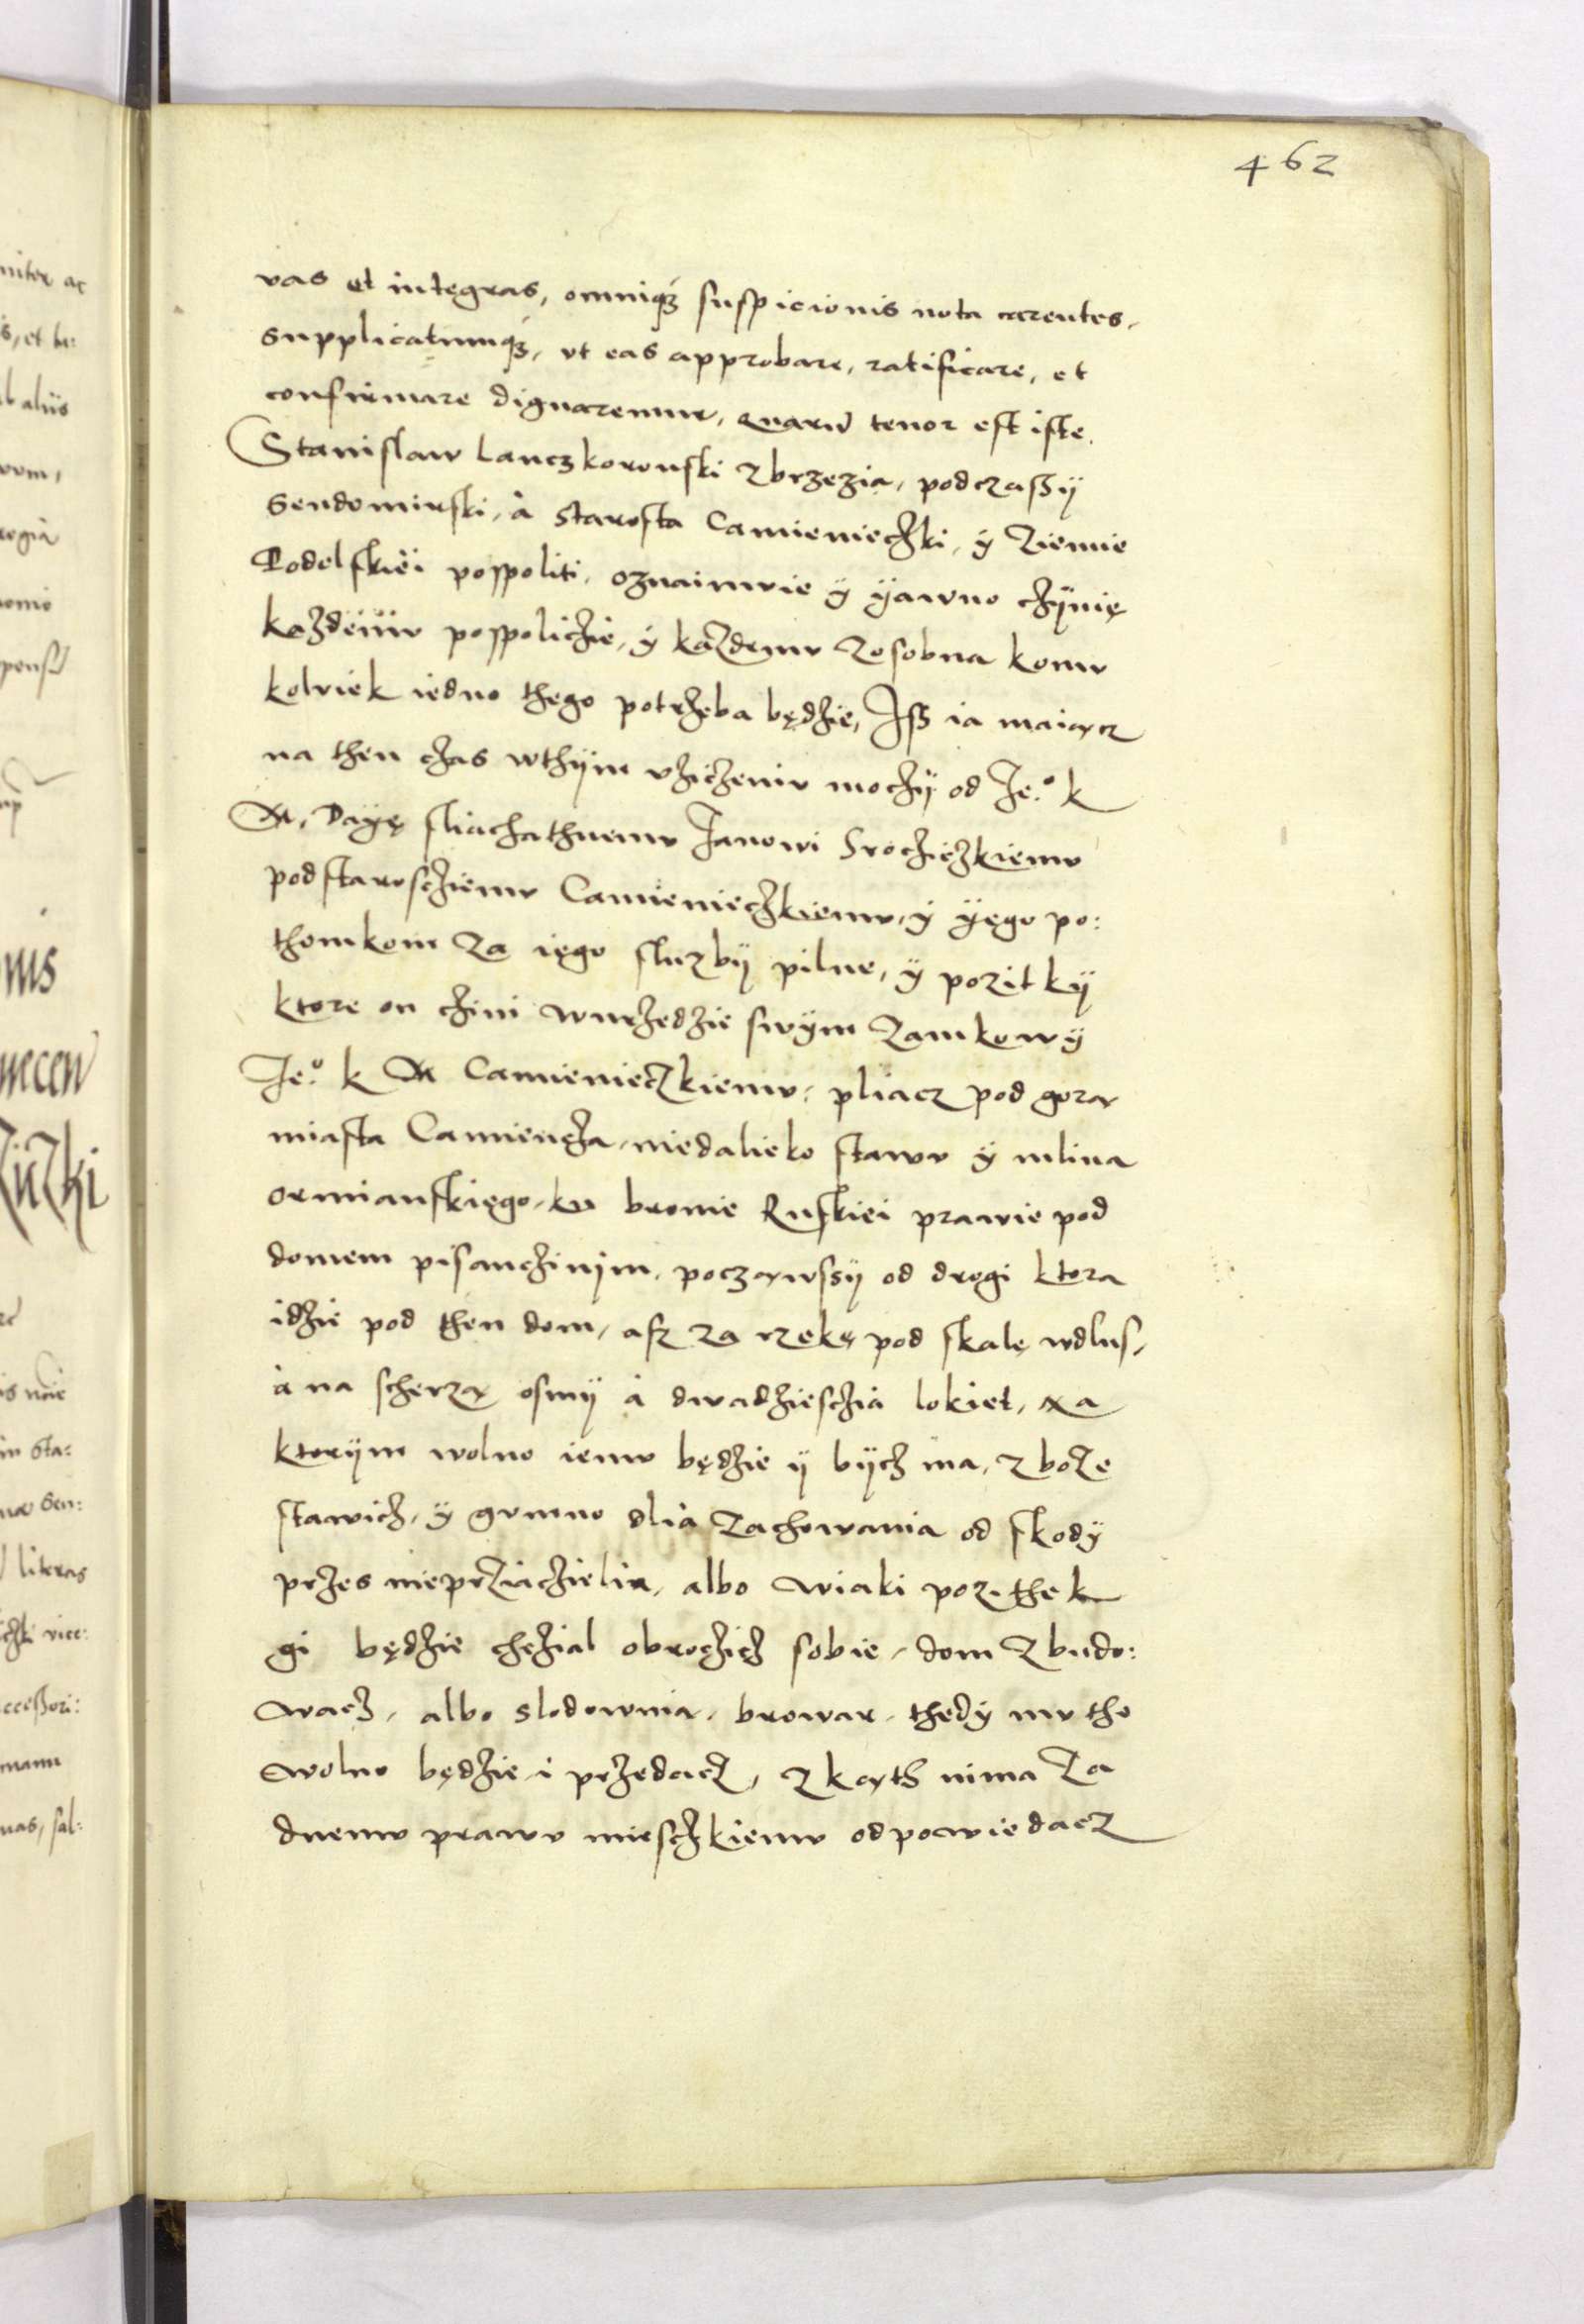 462
vas et integras, omniq́3 suspicionis nota carentes,
supplicatumq́3, vt eas approbare, ratificare, et
confirmare dignaremur, quarū tenor est iste.
Stanislaw Lanczkoronski z brzezia, podczaszÿ
Sendomirski, à Starosta Camienieczki, ÿ Ziemie
Podolskiei pospoliti, oznaimvie ÿ ÿawno czÿnię
kazdemv pospoliczie, ÿ kazdemv zosobna komv
kolviek iedno thego potrzeba będzie, Isz ia maiącz
na then czas wthÿm vziczeniv moczÿ od Je.º k
M. Dayę sliachathnemv Janowi Sroczieczkiemv
podstarosciemv Camienieczkiemv, ÿ ÿego po:
thomkom za iego sluzbÿ pilne, ÿ pozitkÿ
ktore on czini wurzedzie swÿm zamkowÿ
Je.º k M Camienieczkiemv, pliacz pod gorą
miasta Camiencza, niedalieko stawv ÿ mlina
ormianskiego, ku bronie Ruskiei prawie pod
domem pisanczinim, począwssÿ od drogi ktora
idzie pod then dom, asz za rzekę pod skalę wdlus,
à na scherzą osmÿ à dwadziesczia lokiet, na
ktorÿm wolno iemv będzie ÿ bÿcz ma, zboze
stawicz, ÿ gvmno dlia zachowania od skodÿ
przes nieprziaczielia, albo wiaki pozithek
gi będzie chczial obroczicz sobie, dom zbudo:
wacz, albo slodownia, browar, thedÿ mv tho
wolno będzie i przedacz, z kąth nima za
dnemv prawv mieschzkiemv odpowiedacz